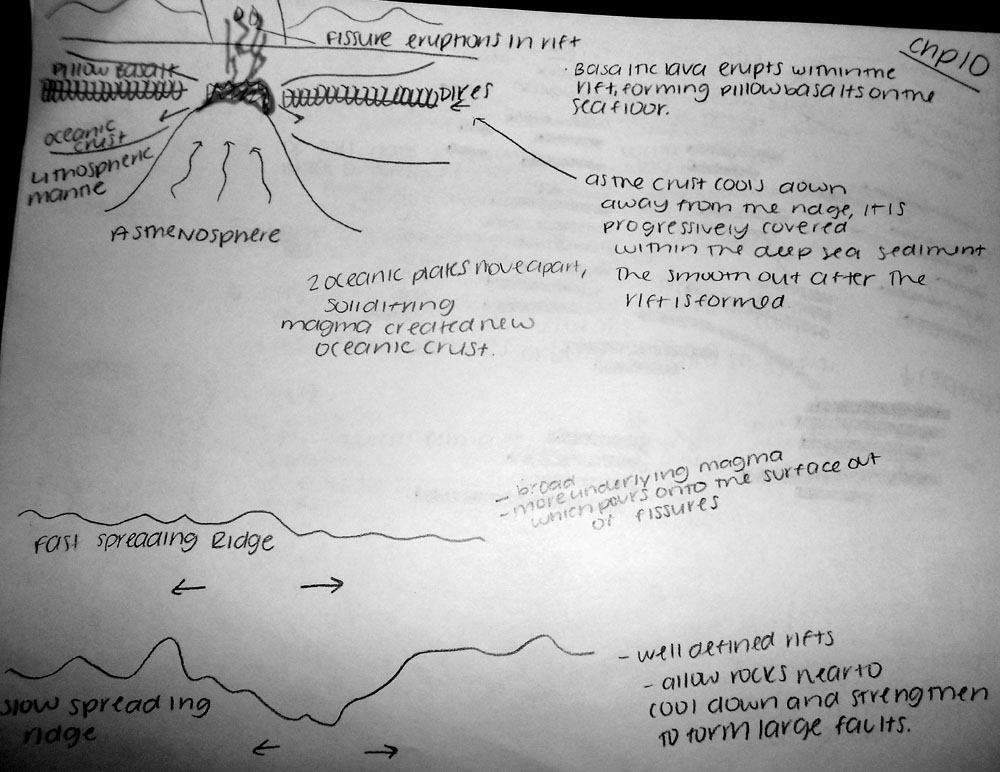 chp10
Fissure eruptions in rift
Pillow Basalt
Dikes
oceanic
crust
Lithospheric
mantle
Asthenosphere
· Basaltic lava erupts within the
rift, forming pillow basalts on the
seafloor.
as the crust cools down
away from the ridge, it is
progressively covered
within the deep sea sediment
the smooth out after the
rift is formed
2 oceanic plates move apart,
magma created new
oceanic crust.
- broad
- more underlying magma
which pours onto the surface out
of fissures
Fast spreading Ridge
slow spreading
ridge
- well defined rifts
- allow rocks near to
cool down and strengthen
to form large faults.